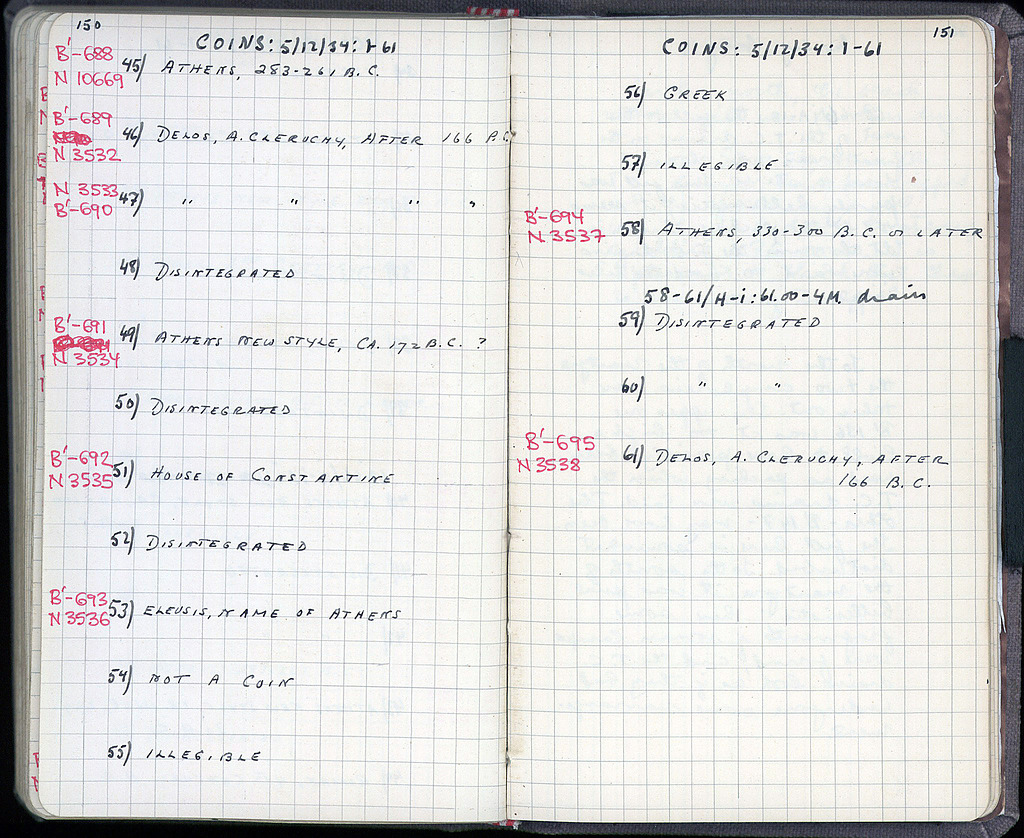 150
COINS: 5/12/34: 1-61
B'-688
N 10669
45) ATHENS, 283-261 B.C.
B'-689
N 3532
46) DELOS, A. CLERUCHY, AFTER 166 B.C.
N 3533
B'-690
47) " " " "
48) DISINTEGRATED
B'-691
N 3534
49) ATHENS NEW STYLE, CA. 172 B.C. ?
50) DISINTEGRATED
B'-692
N 3535
51) HOUSE OF CONSTANTINE
52) DISINTEGRATED
B'-693
N 3536
53) ELEUSIS, NAME OF ATHENS
54) NOT A COIN
55) ILLEGIBLE
151
COINS: 5/12/34: 1-61
56) GREEK
57) ILLEGIBLE
B'-694
N 3537
58) ATHENS, 330-300 B.C. or LATER
58-61/H-i: 61.00-4M. drain
59) DISINTEGRATED
60) " "
B'-695
N 3538
61) DELOS, A. CLERUCHY, AFTER
166 B.C.